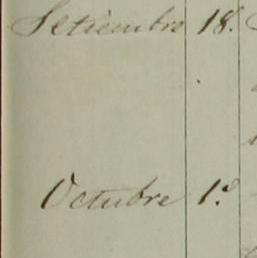 Setiembre 18.
Octubre 1.º